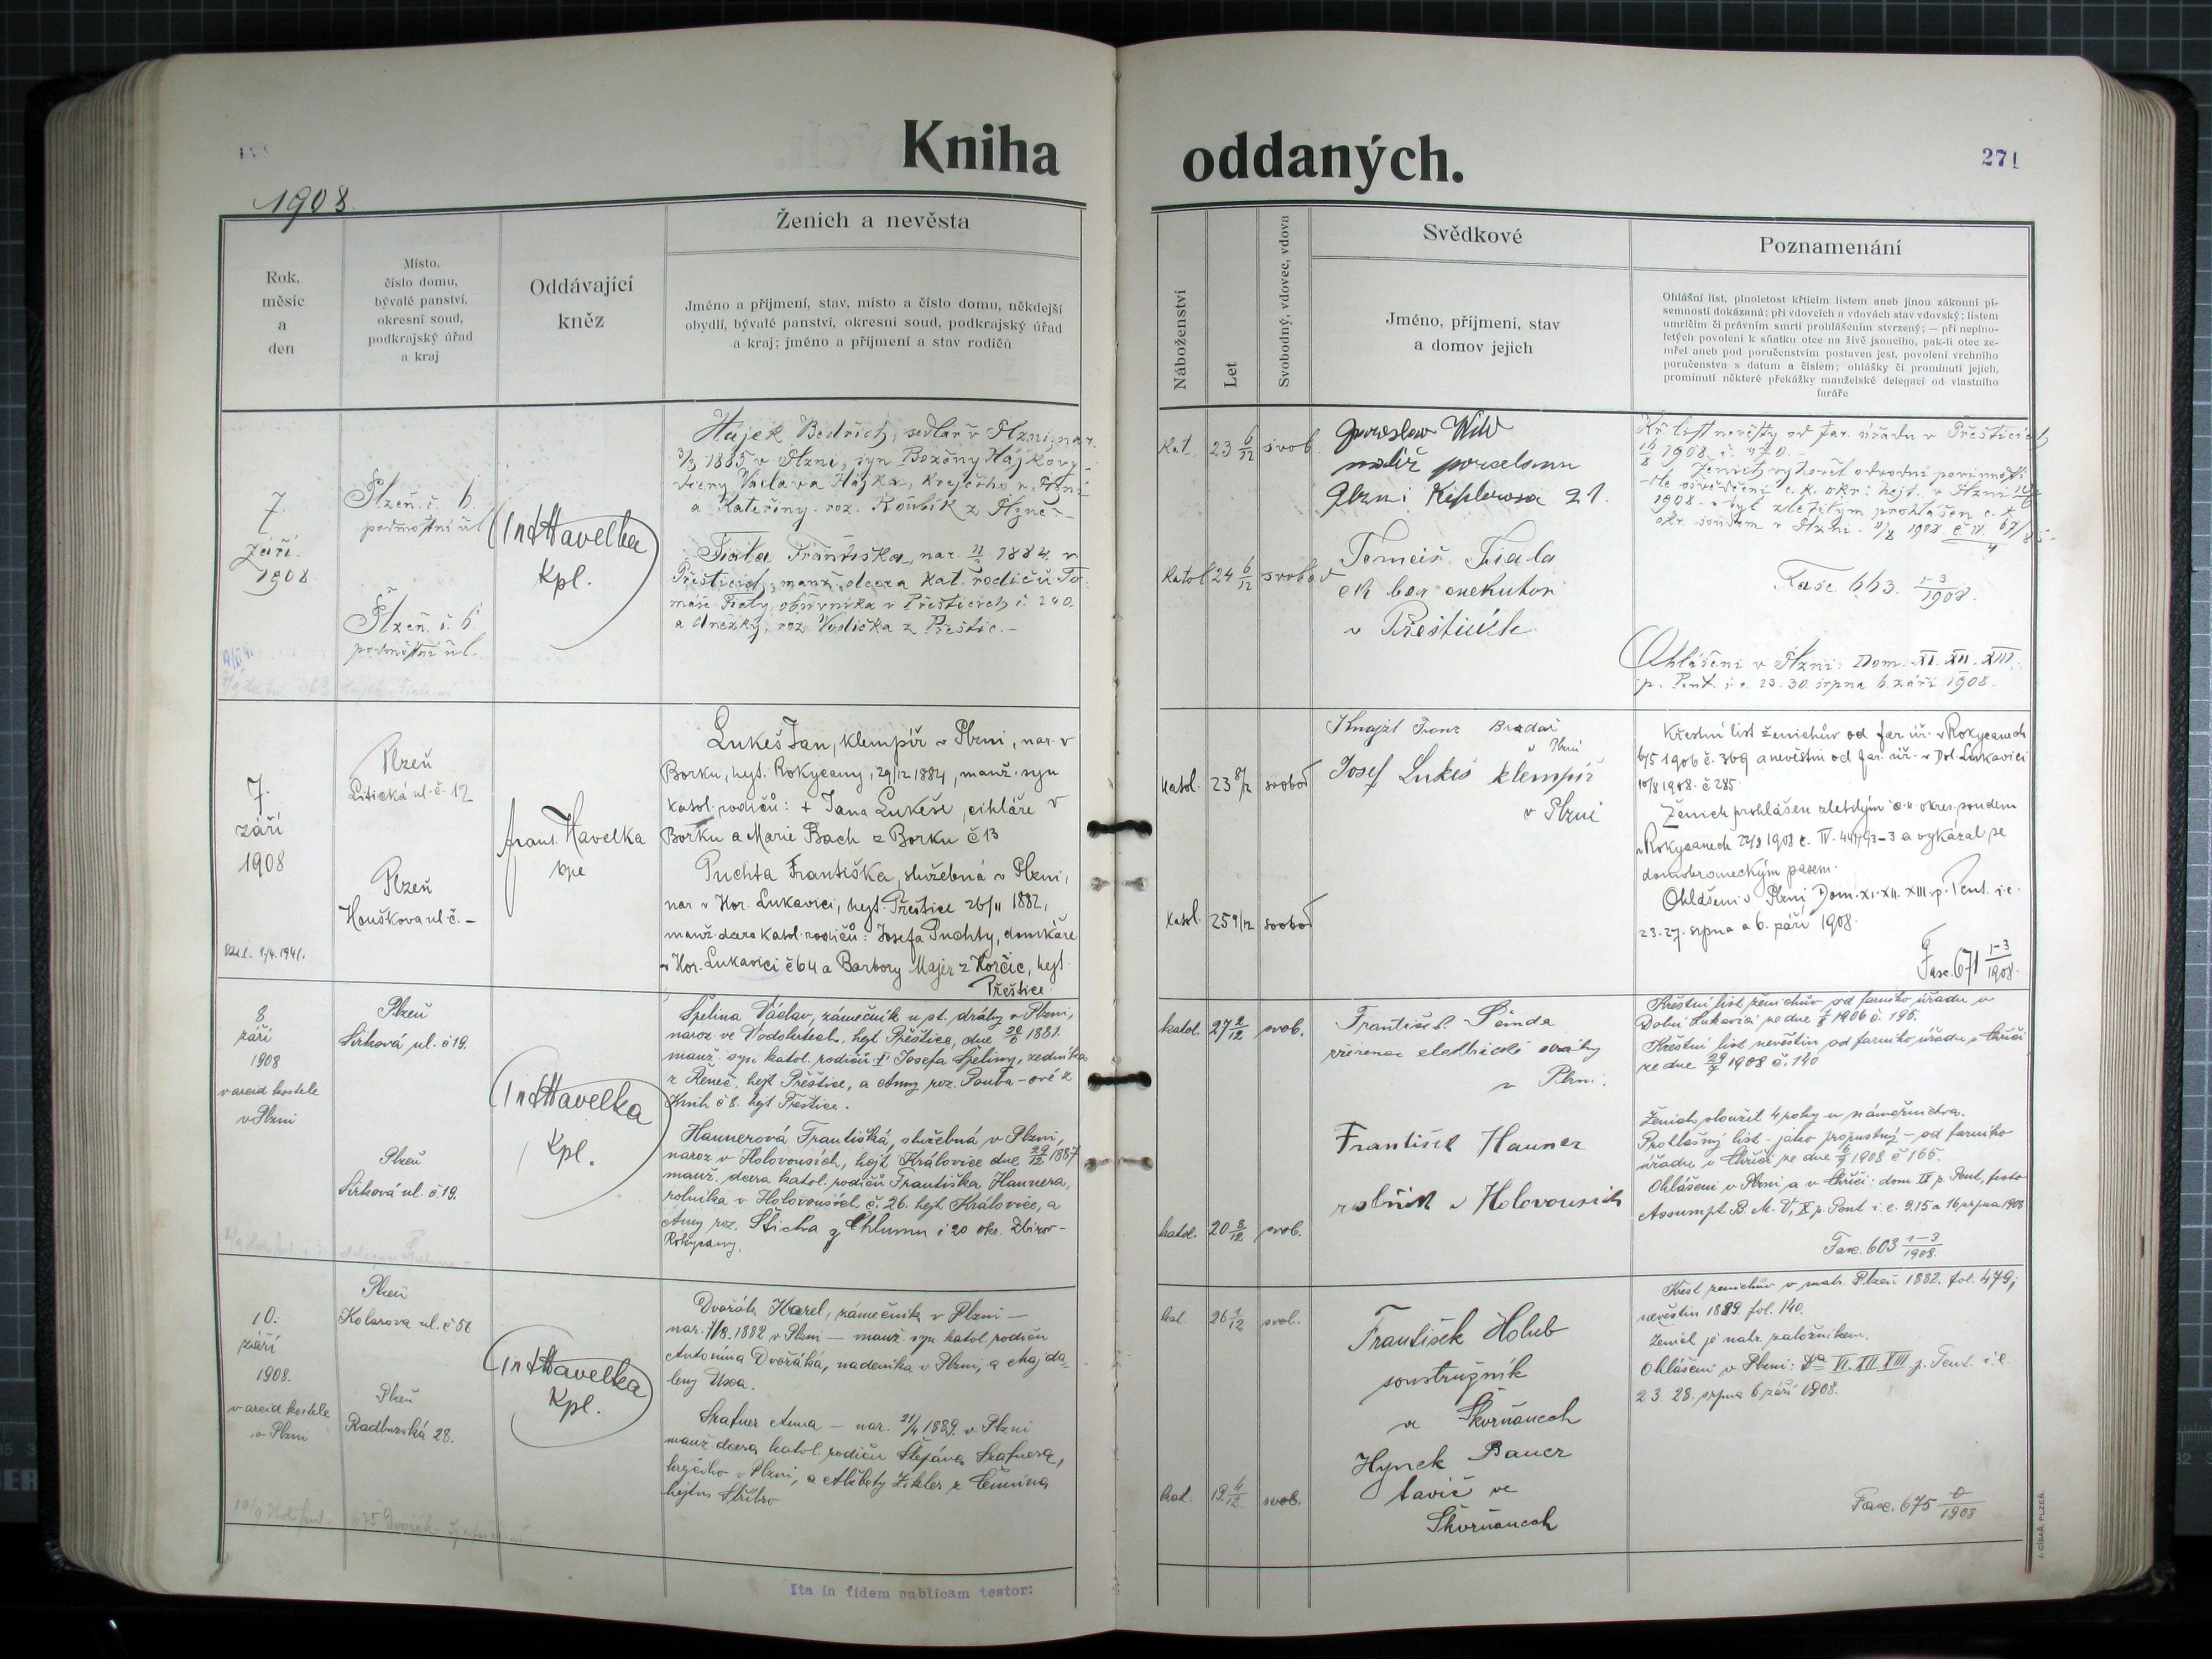 Kniha
oddaných.
271
1908
Rok,
měsíc
a
den
Místo,
číslo domu,
bývalé panství,
okresní soud,
podkrajský úřad
a kraj
Oddávající
kněz
Ženich a nevěsta
Jméno a příjmení, stav, místo a číslo domu, někdejší
obydlí, bývalé panství, okresní soud, podkrajský úřad
a kraj; jméno a příjmení a stav rodičů
Náboženství
Let
Svobodný, vdovec, vdova
Svědkové
Jméno, příjmení, stav
a domov jejich
Poznamenání
Ohlášní list, plnoletost křticím listem aneb jinou zákonní pí-
semností dokázaná; při vdovcích a vdovách stav vdovský; listem
umrlčím či právním smrti prohlášením stvrzený; — při neplno-
letých povolení k sňatku otce na živě jsoucího, pak-li otec ze-
mřel aneb pod poručenstvím postaven jest, povolení vrchního
poručenstva s datum a číslem; ohlášky či prominutí jejich,
prominutí některé překážky manželské delegací od vlastního
faráře
7
září
1908
Plzeň č. 6.
podmostní ul.
Plzeň č. 6
podmostní ul.
Havelka
Kpl.
Hájek Bedřich, sedlář v Plzni, nar.
3/3 1885 v Plzni, syn Boženy Hájkovy
dcery Václava Hájka, krejčího v Plzni
a Kateřiny roz. Koubík z Plzně —
Fiala Františka, nar. 1884 v
Přešticích, manž. dcera kat. rodičů To-
máše Fialy, obuvníka v Přešticích č. 240.
a Anežky, roz. Vodička z Přeštic. —
Kat. 23 6/12 svob.
Katol 24 6/12 svobod
Jaroslav Wild
malíř porcelanu
Plzni Keplerova 21.
Tomáš Fiala
ck ber exekutor
v Přešticích
Kř. list nevěsty od far. úřadu v Přešticích
1908 č. 470. —
Ženich vyhověl odvodní povinnosti
dle osvědčení c. k. okr. hejt. v Plzni
1908. a byl zletilým prohlášen c. k.
okr. soudem v Plzni
Fasc. 663. 1-3/1908.
Ohlášeni v Plzni: Dom. XI. XII. XIII.
p. Pent. i. e. 23. 30. srpna 6. září 1908.
7.
září
1908
1/4. 1941.
Plzeň
Litická ul. č. 12
Plzeň
Houškova ul č. —
Frant. Havelka
kpl
Lukeš Jan, klempíř v Plzni, nar. v
Borku, hejt. Rokycany, 29/12 1884, manž. syn
katol. rodičů: + Jana Lukeše, cihláře v
Borku a Marie Bach z Borku č 13
Puchta Františka, služebná v Plzni,
nar v Hor. Lukavici, hejt. Přeštice 26/11 1882,
manž. dcera katol. rodičů: Josefa Puchty, domkáře
v Hor. Lukavici č 64 a Barbory Majer z Horčic, hejt.
Přeštice.
katol. 23 8/12 svobod
katol. 25 9/12 svobod
Franz Bradač
v Plzni
Josef Lukeš klempíř
v Plzni
Křestní list ženichův od far. úř. v Rokycanech
6/5 1906 č. 369 a nevěstin od far. úř. v Dol. Lukavici
10/8 1908. č 285.
Ženich prohlášen zletilým c. k. okres. soudem
v Rokycanech 22/8 1908 č. IV. 441/93-3 a vykázal se
domobraneckým pasem.
Ohlášeni v Plzni, Dom. XI. XII. XIII. p. Pent. i. e.
23. 27. srpna a 6. září 1908.
Fasc. 671 1-3/1908.
8
září
1908
v arcid. kostele
v Plzni
Plzeň
Sirková ul. č 19.
Plzeň
Sirková ul. č 19.
Havelka
Kpl.
Špelina Václav, zámečník u st. dráhy v Plzni,
naroz ve Vodokrtech, hejt Přeštice, dne 1881.
manž. syn katol. rodičů + Josefa Špeliny, zedníka
z Řeneč, hejt Přeštice, a Anny roz. Pouba-ové z
Knih č 8. hejt Přeštice.
Hannerová Františka, služebná v Plzni,
naroz v Holovousích, hejt Kralovice dne 29/12 1887
manž. dcera katol. rodičů Františka Hannera,
rolníka v Holovousích č. 26. hejt Kralovice, a
Anny roz. Šticha z Chlumu č 20 oks. Zbirov-
Rokycany.
katol. 27 2/12 svob.
katol. 20 8/12 svob.
František Šimda
zřízenec elektrické dráhy
v Plzni.
František Hanner
rolník v Holovousích
Křestní list ženichův od farního úřadu v
Dolní Lukavici ze dne 1906 č. 196.
Křestní list nevěstin od farního úřadu v Chříči
ze dne 29/7 1908 č. 140
Ženich sloužil 4 roky u námořnictva.
Prohlašný list - jako propustný - od farního
úřadu v Chříči ze dne 1908 č 165.
Ohlášeni v Plzni a v Chříči: dom IX p. Pent, festo
Assumpt B. M. V, X p. Pent i. e. 9. 15 a 16 srpna 1908
Fasc. 603 1-3/1908.
10.
září
1908.
v arcid. kostele
v Plzni
Plzeň
Kolarova ul. č 56
Plzeň
Radbuzská 28.
Havelka
Kpl.
Dvořák Karel, zámečník v Plzni —
nar. 1882 v Plzni — manž. syn katol. rodičů
Antonína Dvořáka, nadeníka v Plzni, a Majda-
leny Uxa.
Šrafner Anna — nar. 21/4 1889. v Plzni
manž. dcera katol. rodičů Štěpána Šrafnera,
krejčího v Plzni, a Alžběty Zikler z
hejtm Stříbro
kat. 26 1/12 svob.
kat. 19 4/12 svob.
František Holub
soustružník
ve Škvrňanech
Hynek Bauer
ve
Škvrňanech
Křest ženichův v matr. Plzeň 1882. fol. 479;
nevěstin 1889. fol. 140.
Ženich je nahr. záložníkem.
Ohlášeni v Plzni: XI. XII XIII. p. Pent. i. e.
23. 28. srpna 6 září 1908.
Fasc. 675 0/1908
Ita in fidem publicam testor:
J. CÍSAŘ, PLZEŇ.